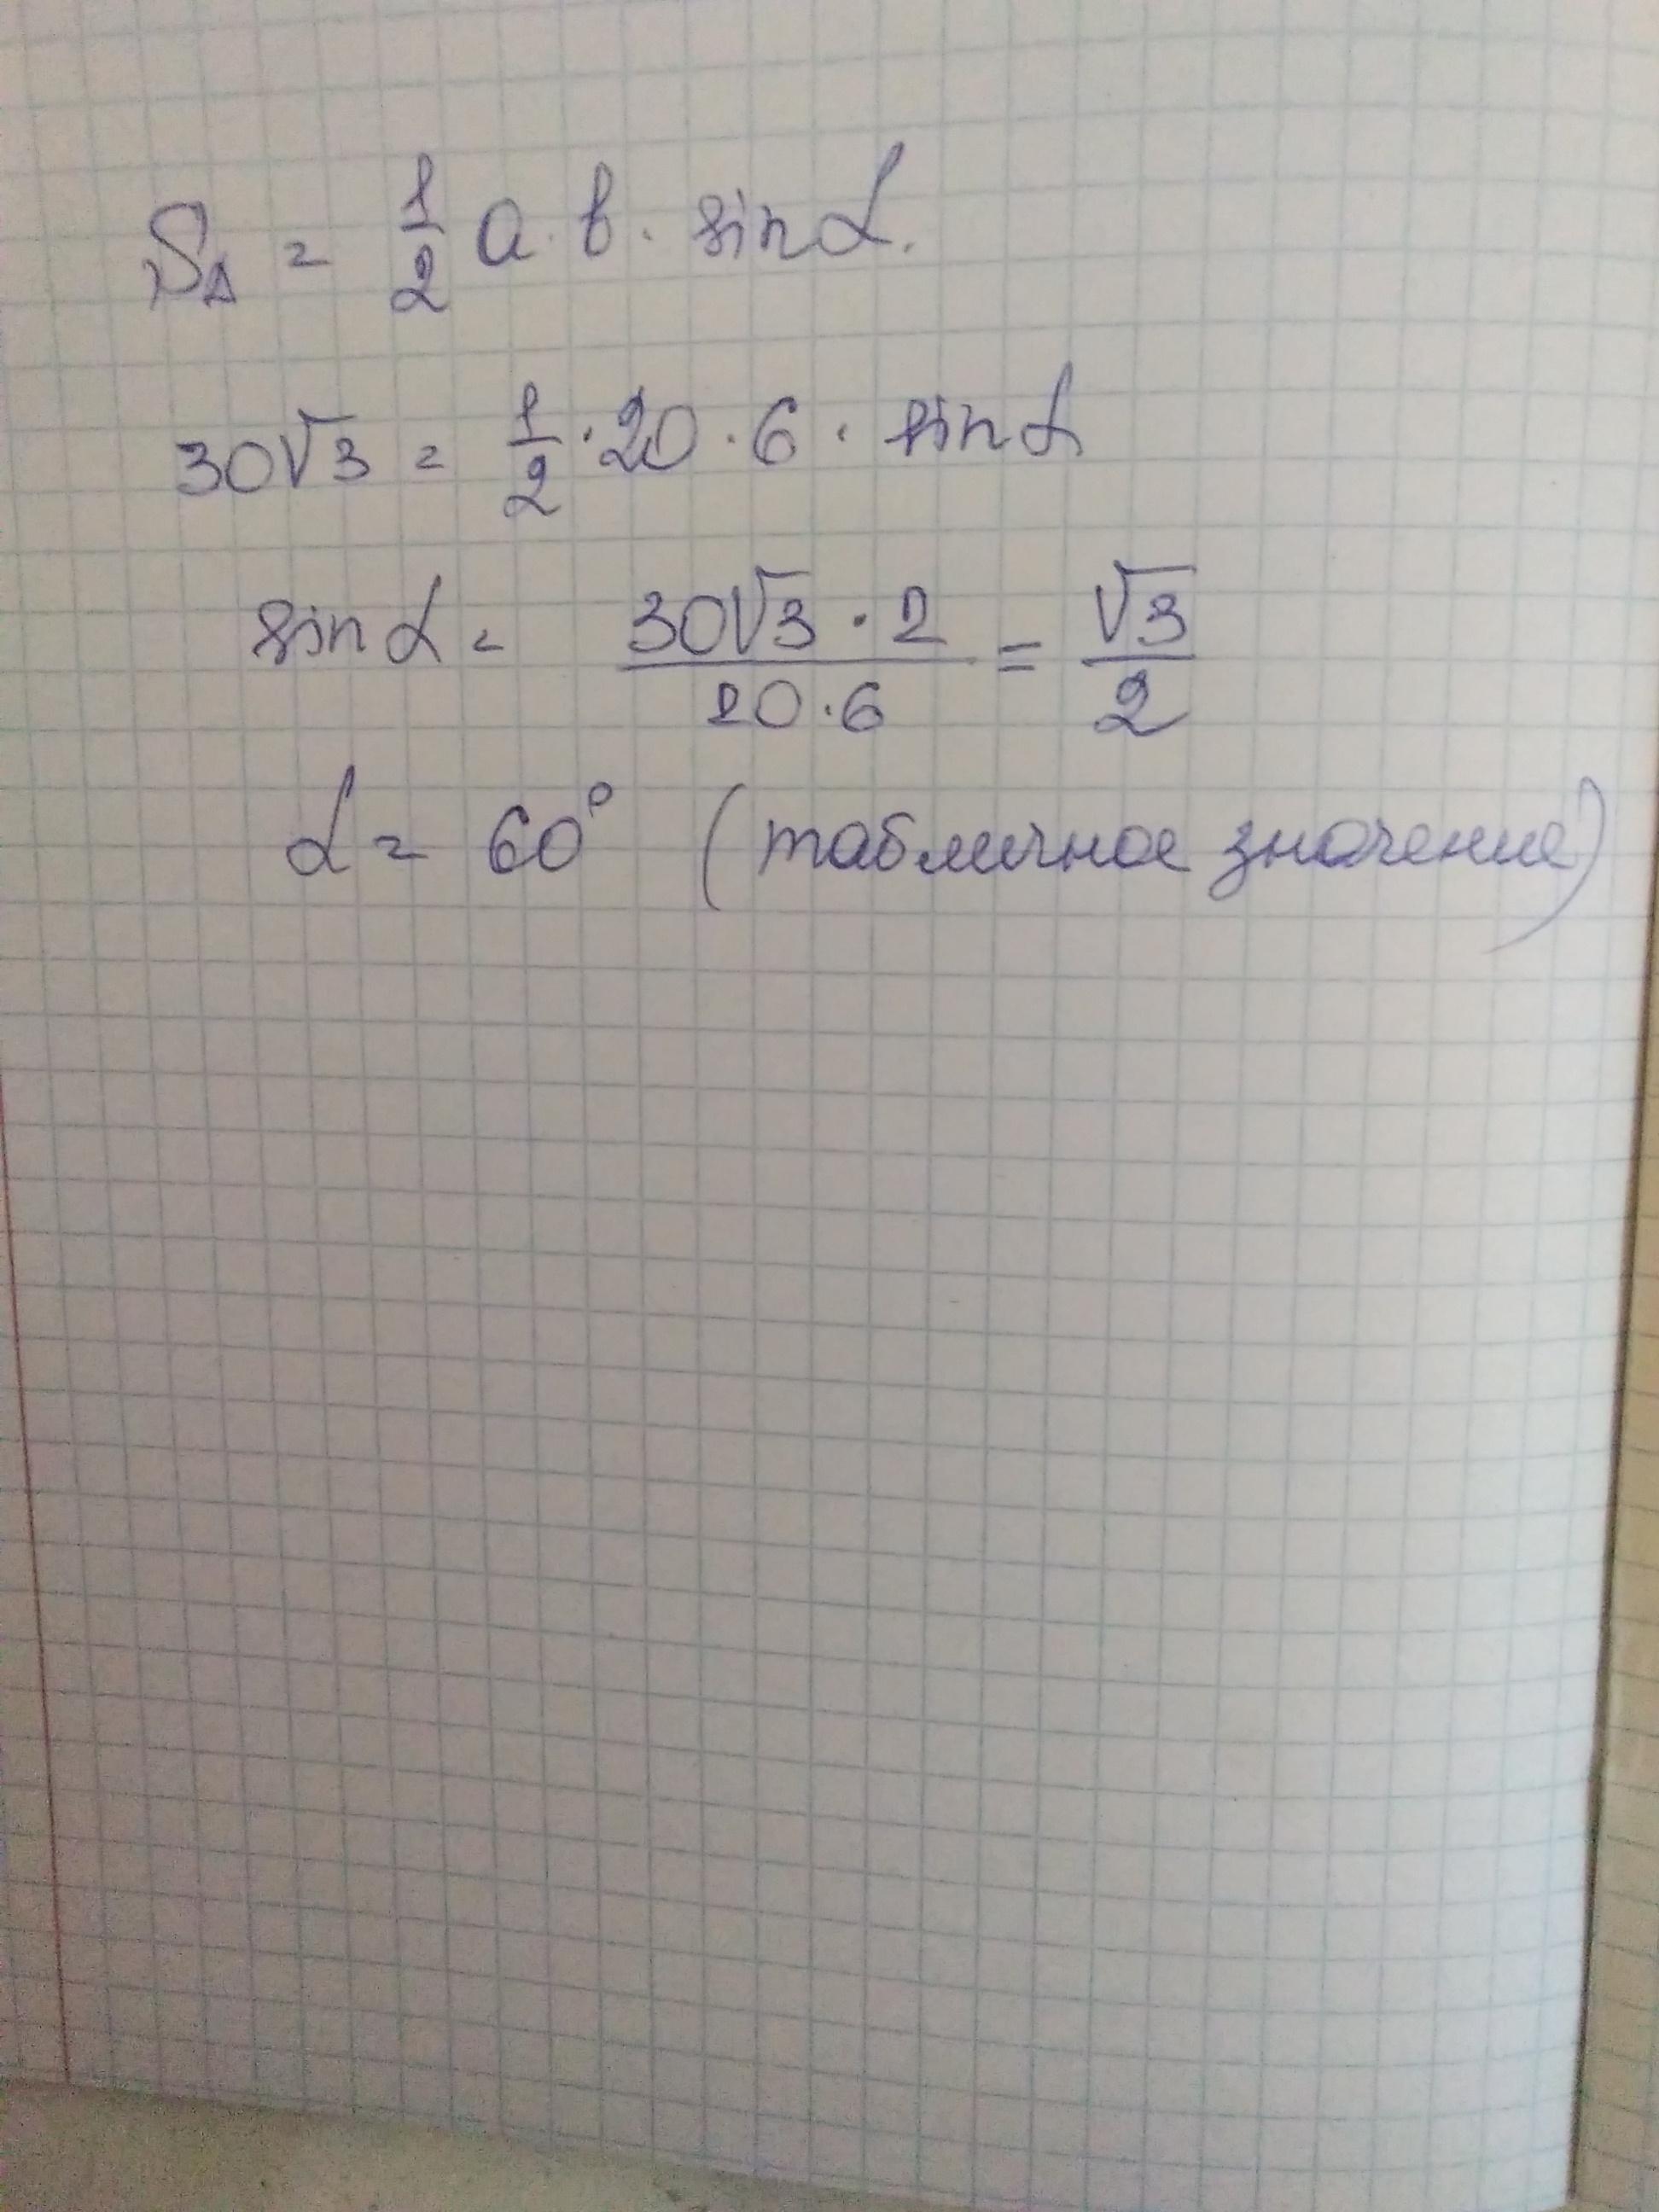 S_Δ = 1/2 a · b · sin α.
30√3 = 1/2 · 20 · 6 · sin α
sin α = (30√3 · 2)/(20 · 6) = √3/2
α = 60° (табличное значение)